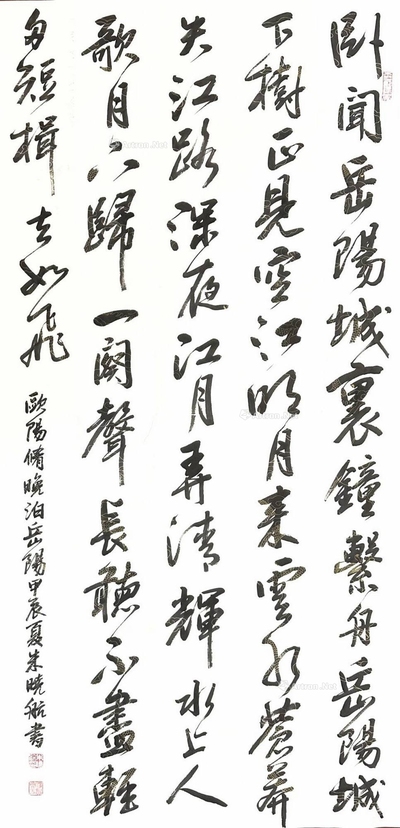 卧聞岳陽城裏鐘繫舟岳陽城
下樹正見空江明月来雲水蒼莽
失江路深夜江月弄清輝水上人
歌月下歸一闋聲長聽不盡輕
舟短楫去如飛
歐陽脩晚泊岳陽甲辰夏朱曉航書